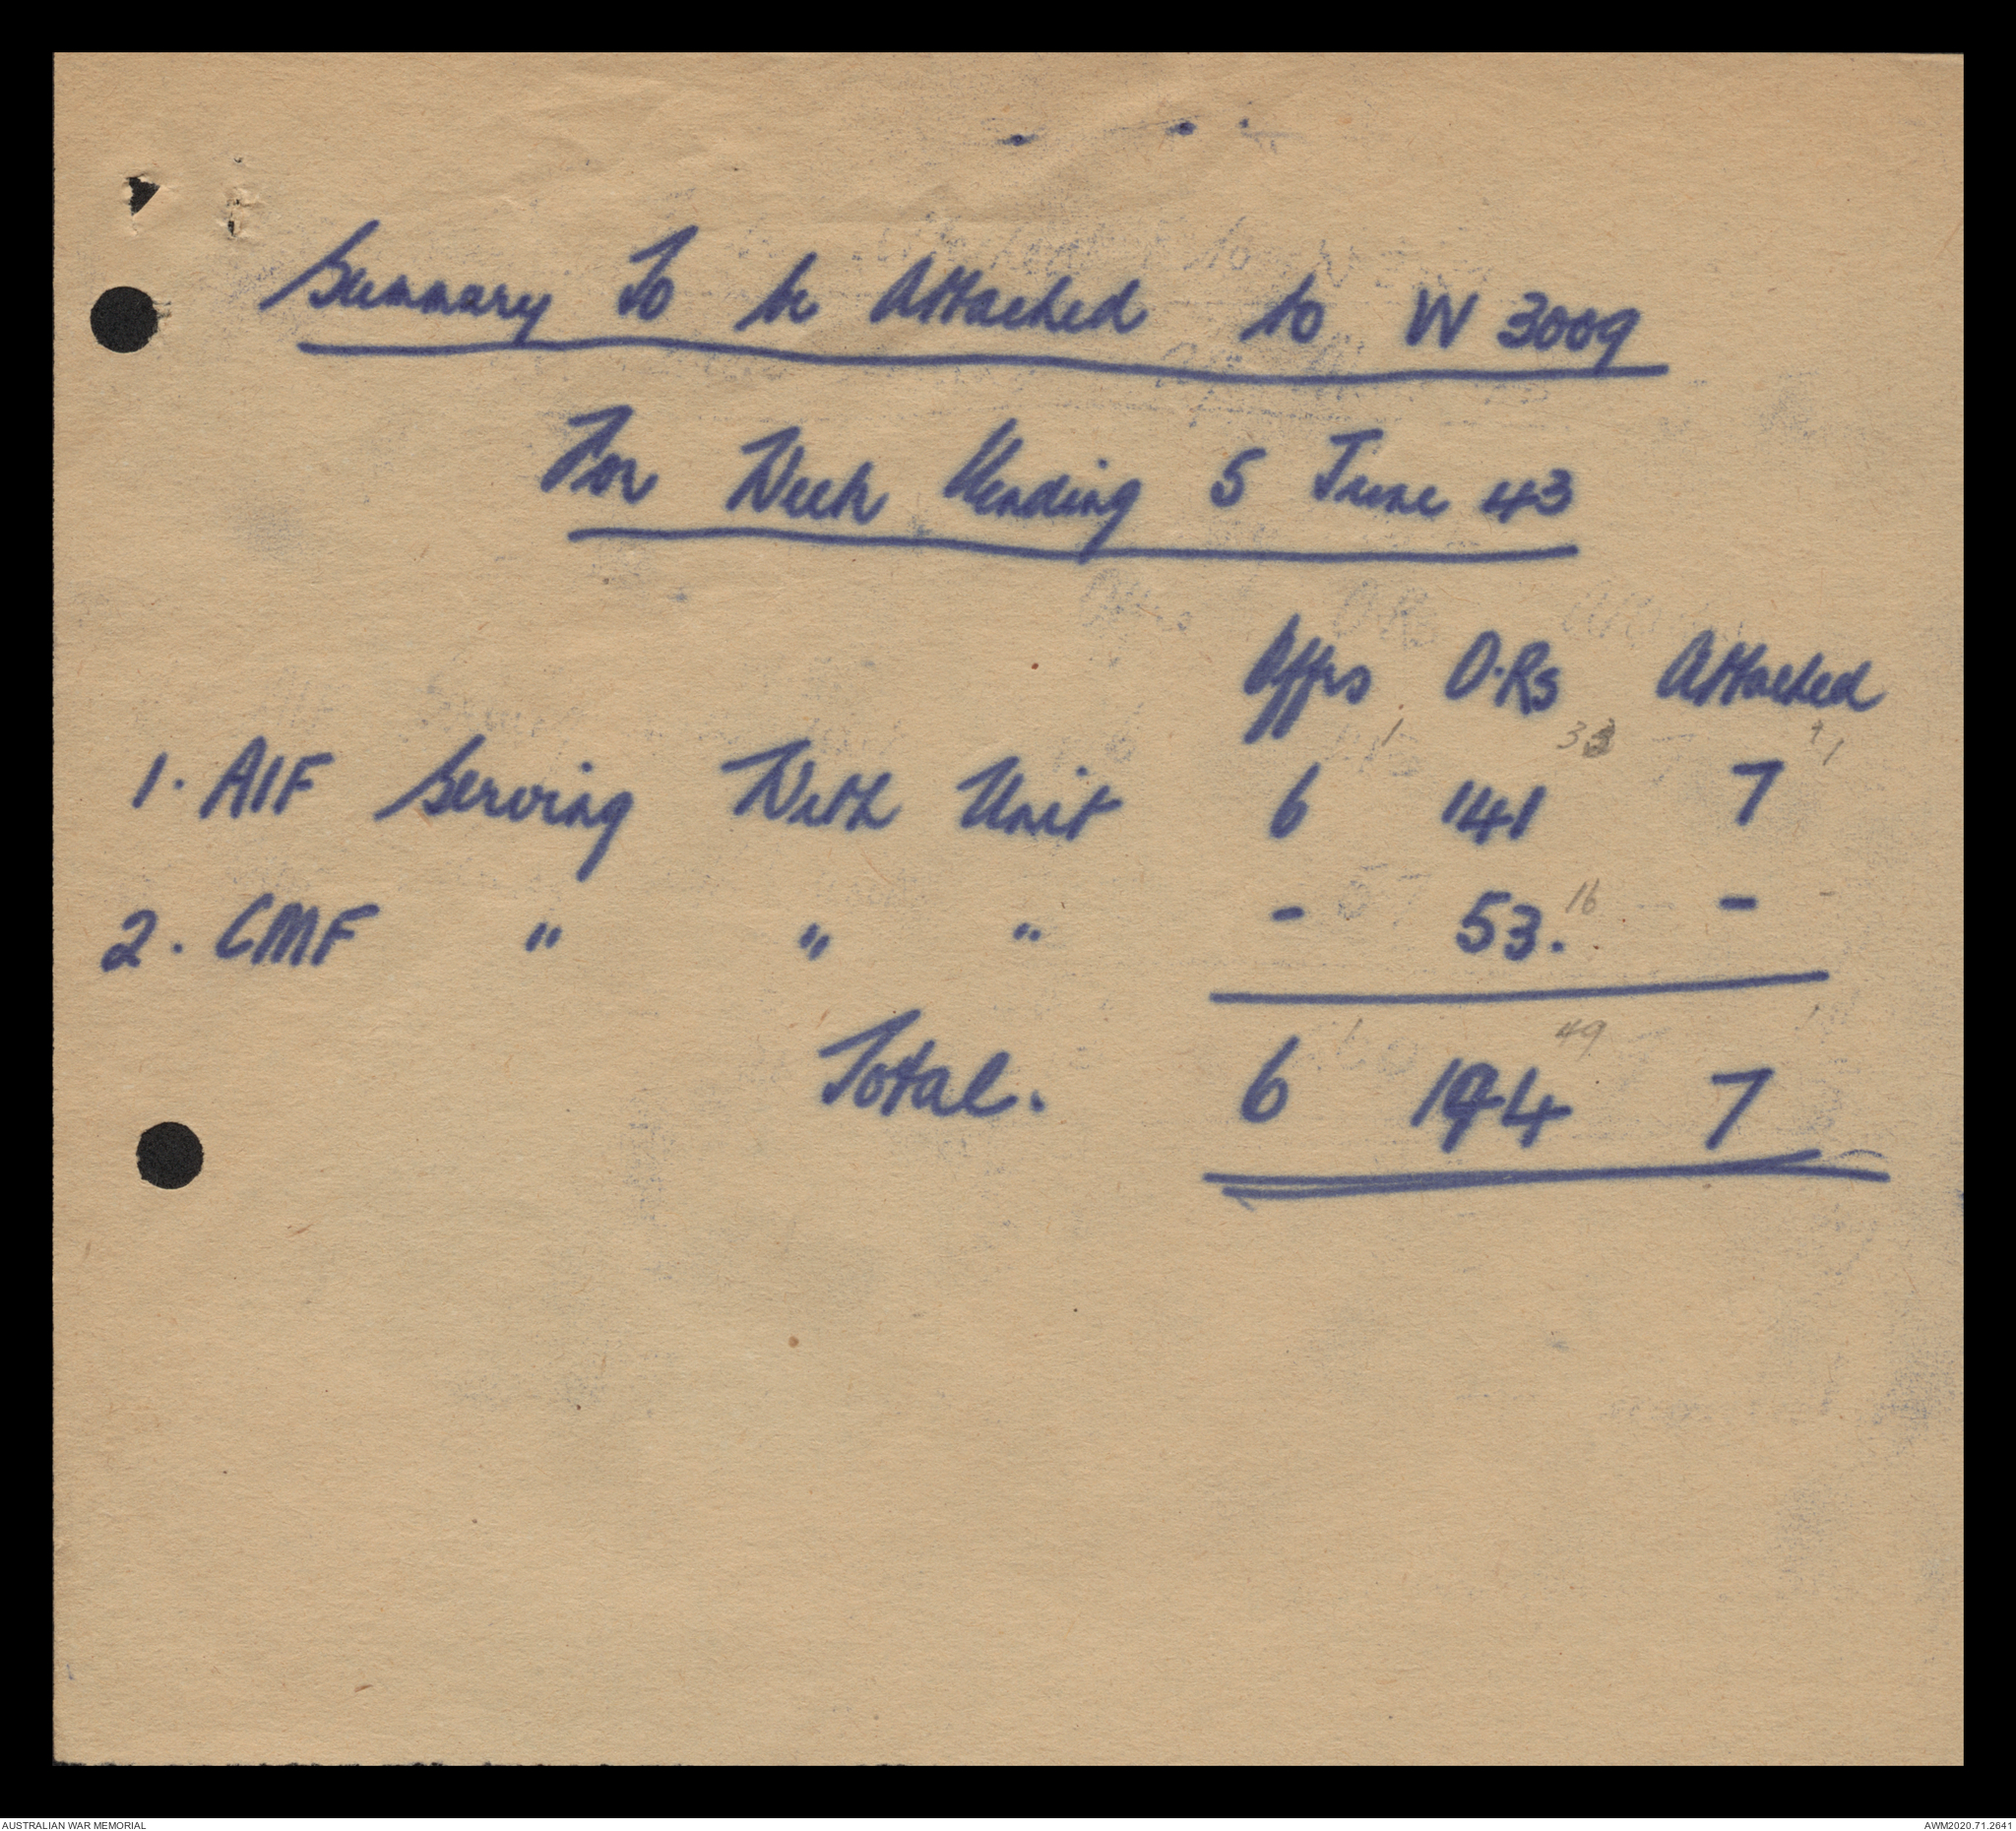 Summary To be Attached to W 3009
For Week Ending 5 June 43
Offrs O.Rs Attached
1 33 1
1. AIF Serving With Unit 6 141 7
16 -
2. CMF " " " - 53. -
49 1
Total. 6 194 7
AUSTRALIAN WAR MEMORIAL AWM2020.71.2641